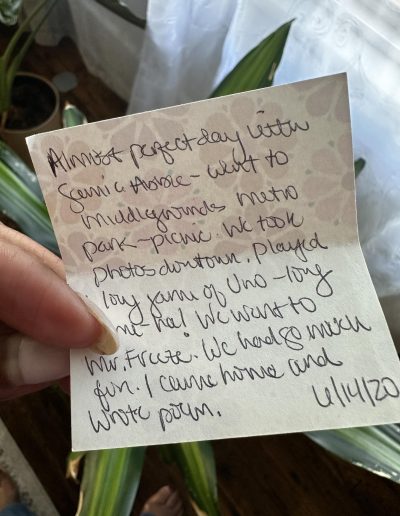 Almost perfect day with
& - went to
Middlegrounds metro
park - picnic. We took
photos downtown. Played
long game of Uno - long
- ha! We went to
Mr. Freeze. We had so much
fun. I came home and
wrote poem. 6/14/20